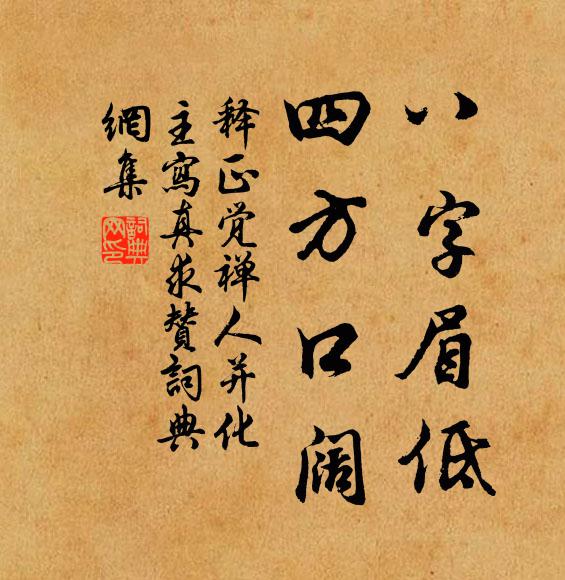 八字眉低
四方口阔
释正觉禅人并化
主寫真求贊詞典
網集
詞典
网印